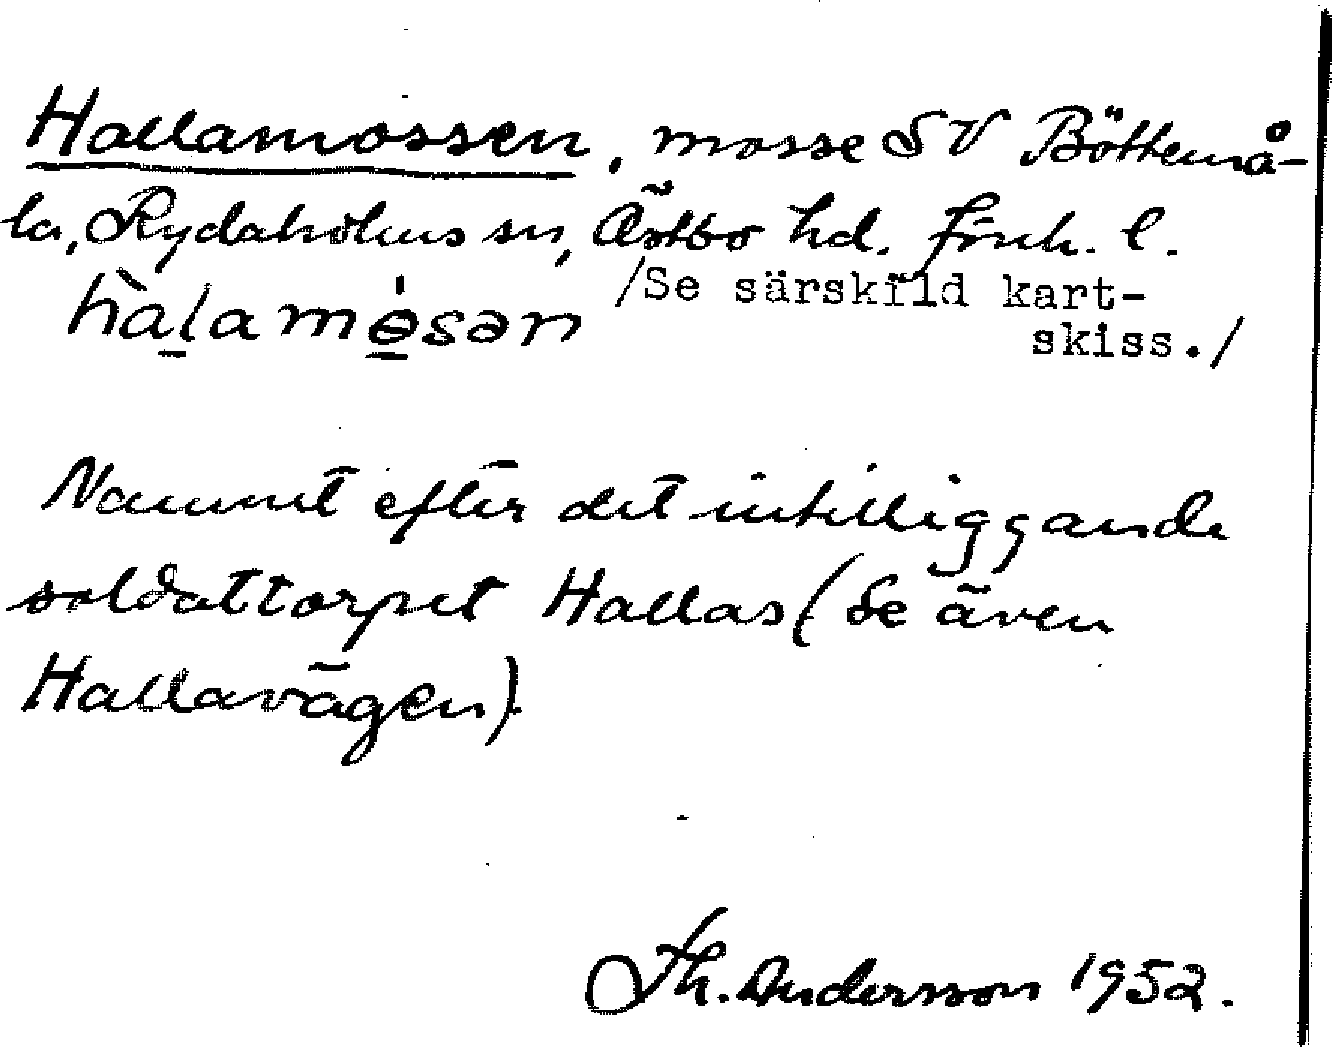 Hallamossen, mosse SV Böttemå-
la, Rydaholms sn, Östbo hd. Jönk. l.
hàlamósən /Se särskild kart-
skiss./
Namnet efter det intilliggande
soldattorpet Hallas (Se även
Hallavägen).
Th. Andersson 1952.